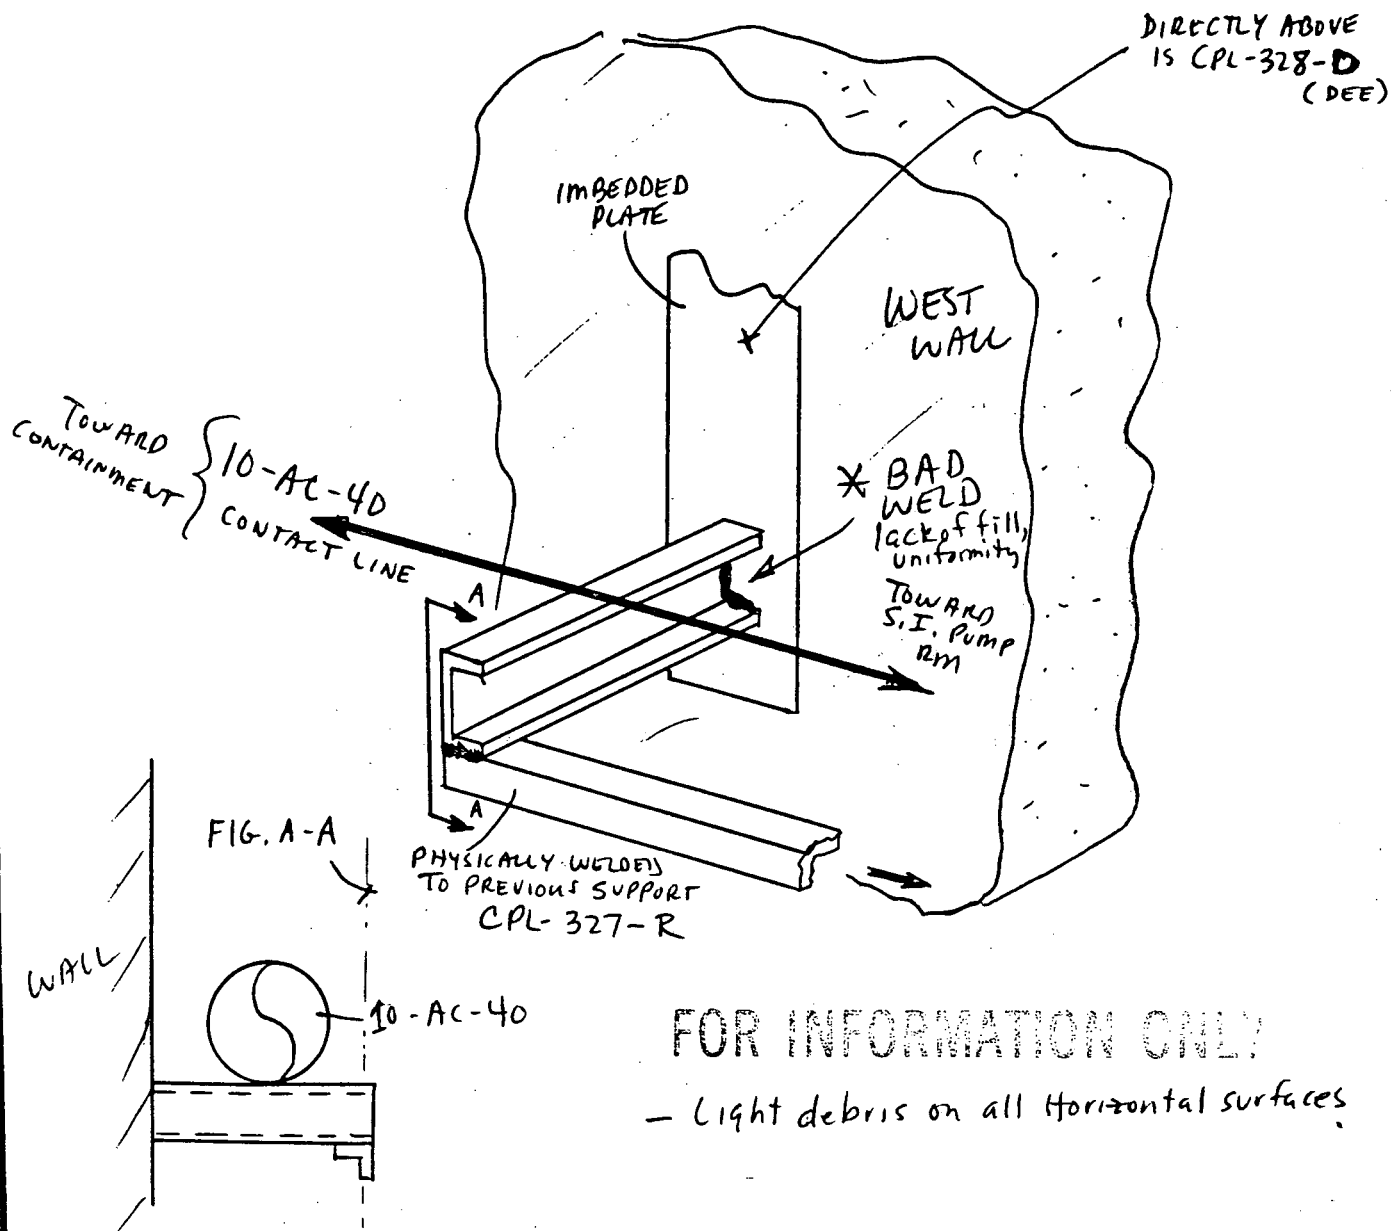 DIRECTLY ABOVE
IS CPL-328-D
(DEE)
IMBEDDED
PLATE
WEST
WALL
TOWARD
CONTAINMENT
10-AC-40
CONTACT LINE
* BAD
WELD
lack of fill,
uniformity
TOWARD
S.I. PUMP
RM
A
A
FIG. A-A
PHYSICALLY WELDED
TO PREVIOUS SUPPORT
CPL-327-R
WALL
10-AC-40
FOR INFORMATION ONLY
- Light debris on all Horizontal surfaces.